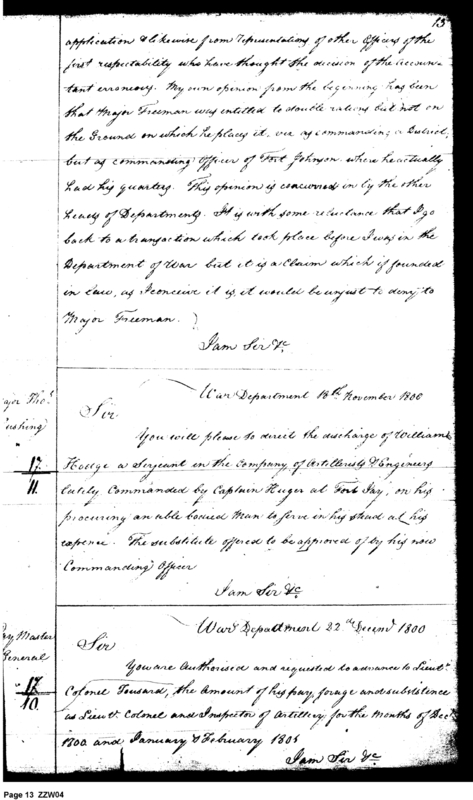 13
application & likewise from representations of other Officers of the
first respectability who have thought the decision of the Accoun-
tant erroneous. My own opinion from the beginning has been
that Major Freeman was entitled to double rations but not on
the Ground on which he places it, viz as commanding a District,
but as commanding Officer of Fort Johnson where he actually
had his quarters. This opinion is concurred in by the other
heads of Departments. It is with some reluctance that I go
back to a transaction which took place before I was in the
Department of War but it is a Claim which if founded
in law, as I conceive it is, it would be unjust to deny to
Major Freeman.
I am Sir &c.
War Department 18th November 1800
ajor Thos
ushing
Sir
You will please to direct the discharge of William
17
11
Hodge a Serjeant in the Company of Artillerists & Engineers
lately Commanded by Captain Huger at Fort Jay, on his
procuring an able bodied Man to serve in his stead at his
expence. The substitute offered to be approved of by his now
Commanding Officer
I am Sir &c.
War Department 22nd Decemr 1800
ay Master
General
Sir
You are Authorised and requested to advance to Lieut.
17
10
Colonel Tousard, the Amount of his pay, forage and subsistence
as Lieut. Colonel and Inspector of Artillery for the Months of Decr.
1800 and January & February 1801
I am Sir &c
Page 13 ZZW04